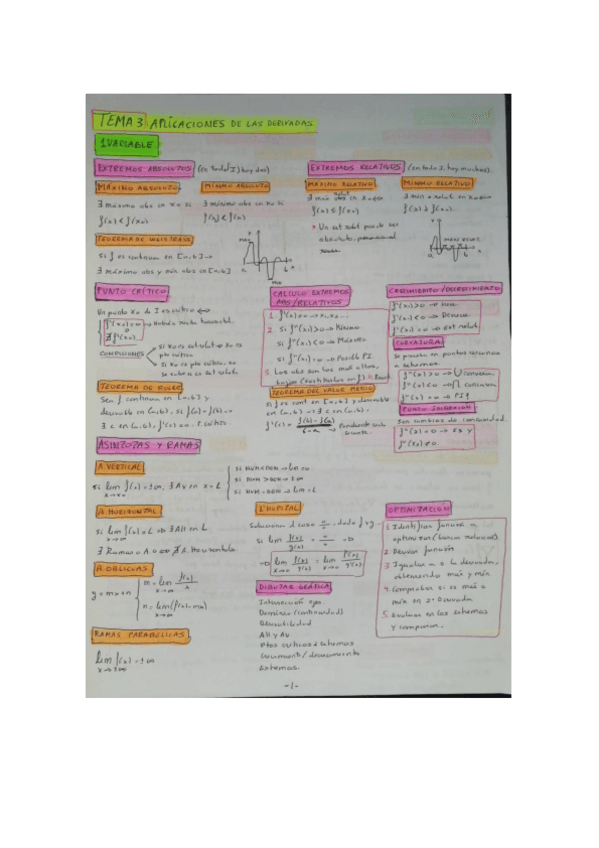 TEMA 3 APLICACIONES DE LAS DERIVADAS
1 VARIABLE
EXTREMOS ABSOLUTOS (en todo I, hay dos)
MÁXIMO ABSOLUTO
∃ máximo abs en x0 si
f(x) ≤ f(x0)
MÍNIMO ABSOLUTO
∃ mínimo abs en x0 si
TEOREMA DE WEIERSTRASS
Si f es continua en [a,b] →
∃ máximo abs y mín abs en [a,b]
EXTREMOS RELATIVOS (en todo I, hay muchos)
MÁXIMO RELATIVO
f(x) ≤ f(x0)
* Un ext relat puede ser
absoluto,
MÍNIMO RELATIVO
f(x) ≥ f(x0)
PUNTO CRÍTICO
Un punto x0 de I es crítico ⟷
f'(x0) = 0 → tangente
∄ f'(x0)
CONDICIONES
Si x0 es ext relat → x0 es
pto crítico
Si x0 es pto crítico, no
TEOREMA DE ROLLE
Sea f continua en [a,b] y
derivable en (a,b), si f(a) = f(b) →
∃ c en (a,b), f'(c) = 0
CALCULO EXTREMOS
ABS/RELATIVOS
1. f'(x) = 0 → x1, x2...
2. Si f''(x1) > 0 → Mínimo
Si f''(x1) < 0 → Máximo
Si f''(x1) = 0 → Posible P.I.
3. Los abs son los más altos,
bajos (sustituirlos en f)
TEOREMA DEL VALOR MEDIO
Si f es cont en [a,b] y derivable
en (a,b) → ∃ c en (a,b),
f'(c) = f(b) - f(a) / b - a → Pendiente
CRECIMIENTO/DECRECIMIENTO
f'(x) > 0 → Crece
f'(x) < 0 → Decrece
f'(x) = 0 → Ext relat.
CURVATURA
f''(x) > 0 → ∪
f''(x) < 0 → ∩
f''(x) = 0 → P.I.
PUNTO INFLEXIÓN
Son cambios de concavidad.
f''(x) = 0 →
f'''(x0) ≠ 0.
ASINTOTAS Y RAMAS
A. VERTICAL
Si lim f(x) = ±∞, ∃ AV en x = L
Si NUM < DEN → lim = 0
Si NUM > DEN → ±∞
Si NUM = DEN → lim = L
A. HORIZONTAL
Si lim f(x) = L → ∃ AH en L
x→∞
A. OBLICUAS
y = mx + n
m = lim f(x)/x
x→∞
n = lim (f(x) - mx)
x→∞
RAMAS PARABÓLICAS
lim f(x) = ±∞
x→±∞
L'HOPITAL
Si lim f(x)/g(x)
lim f(x)/g(x) = lim f'(x)/g'(x)
DIBUJAR GRÁFICA
Intersección ejes.
Dominio (continuidad)
Derivabilidad
AH y AV
Ptos críticos
Crecimiento / decrecimiento
Extremos.
OPTIMIZACION
1. Identificar función a
optimizar
2. Derivar función
3. Igualar a 0 la derivada,
obteniendo máx y mín
4. Comprobar si es máx o
mín en 2ª Derivada
5. Evaluar en los extremos
y comparar.
-1-